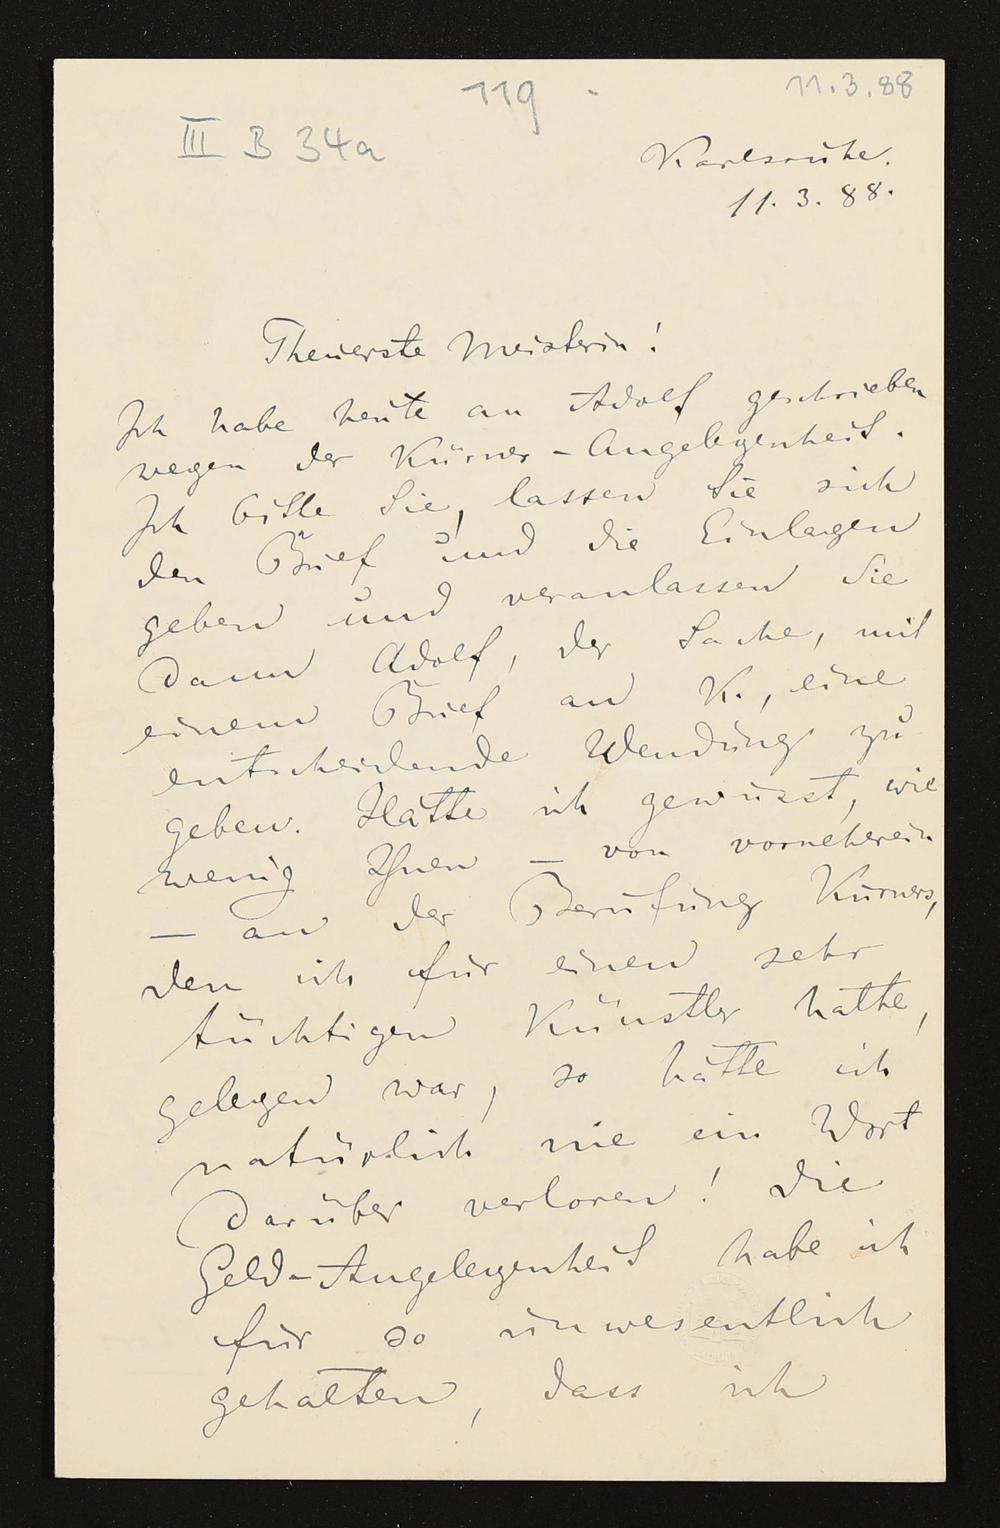 119 -
11.3.88
III B 34a
Karlsruhe.
11. 3. 88.
Theuerste Meisterin!
Ich habe heute an Adolf geschrieben
wegen der Kürner-Angelegenheit.
Ich bitte Sie, lassen Sie sich
den Brief und die Einlagen
geben und veranlassen Sie
dann Adolf, der Sache, mit
einem Brief an K., eine
entscheidende Wendung zu
geben. Hätte ich gewusst, wie
wenig Ihnen – von vorneherein
– an der Berufung Kürners,
den ich für einen sehr
tüchtigen Künstler halte,
gelegen war, so hätte ich
natürlich nie ein Wort
darüber verloren! Die
Geld-Angelegenheit habe ich
für so unwesentlich
gehalten, dass ich